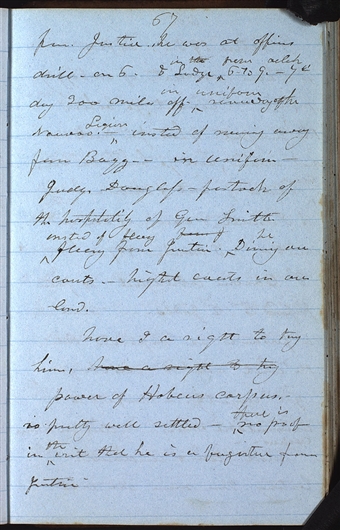 67
from Justice. he was at officer
drill - on 5. & Lodge in the even^g
6 to 9. - 7^th
day 200 mile off - in uniform
review day of the
Nauvoo Legion - insted of runing away
from Baggs - in uniform -
Judge Douglass - partook of
the hospitality of Gen Smith
insted of fleeing he
fleeing from Justice. Dining on
courts - highest courts in our
land.
have I a right to try
him, have a right to try
power of Habeas corpus.
is pretty well settled - there is
no proof
in the writ that he is a fugitive from
Justice